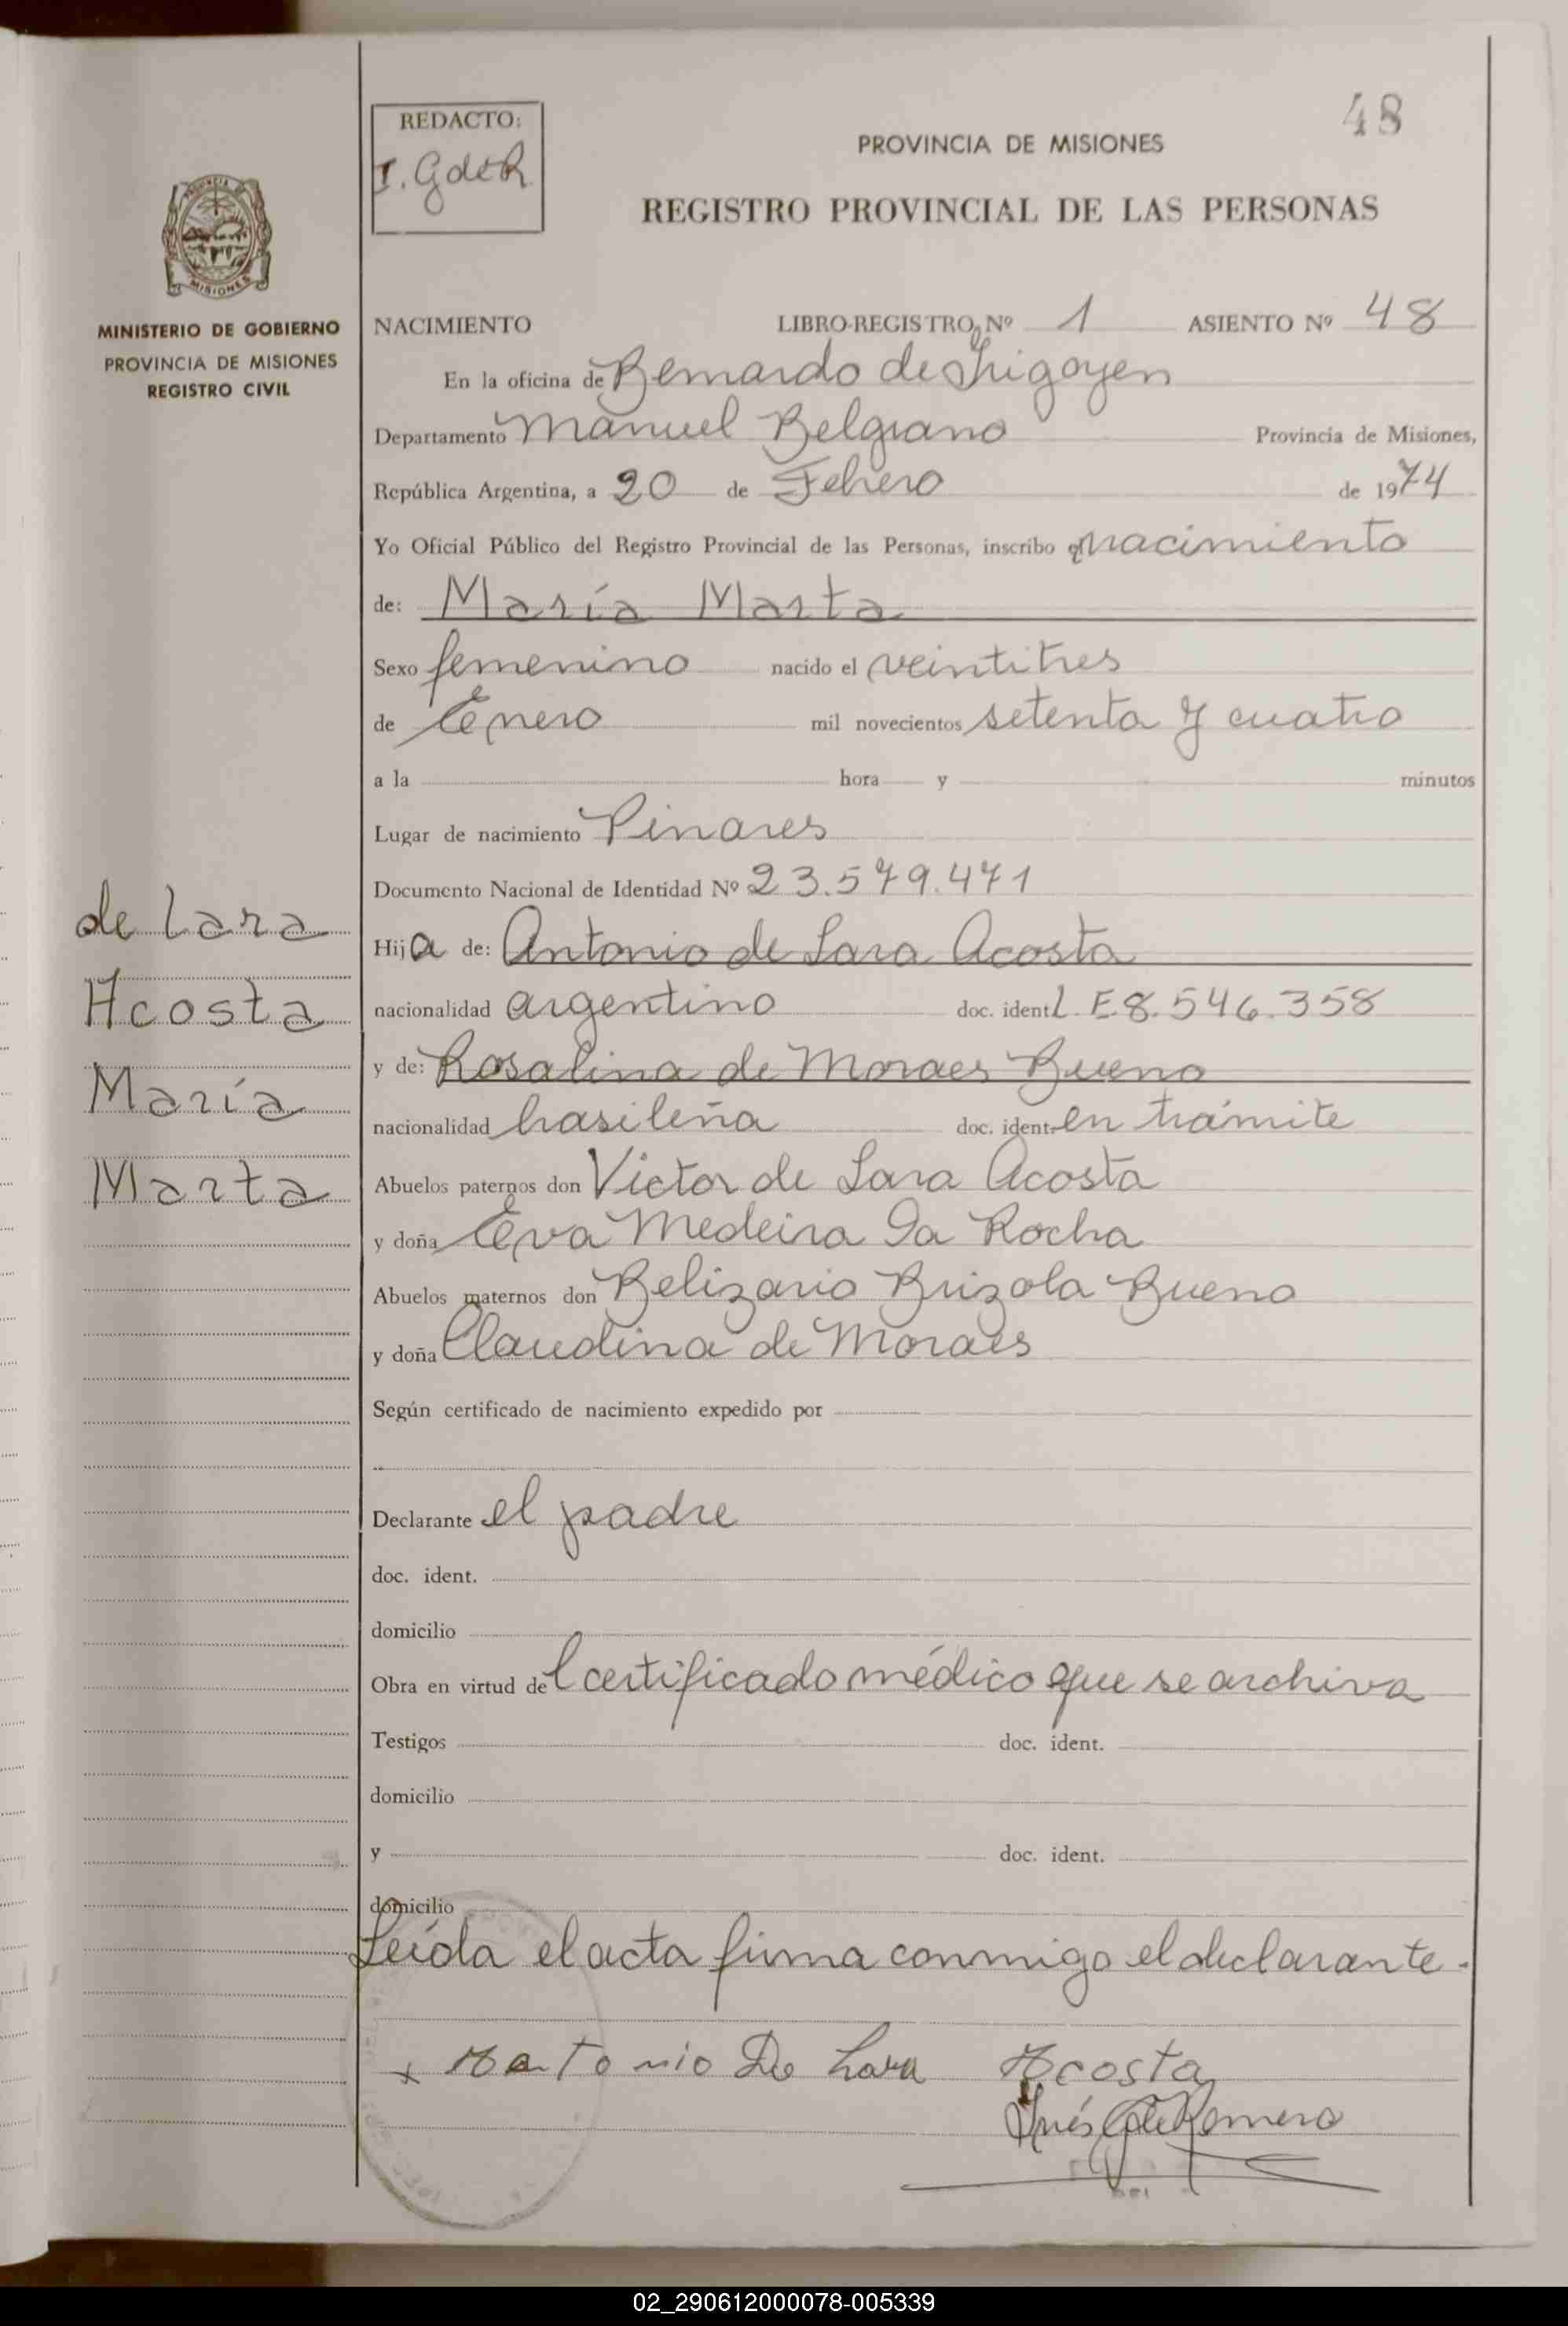 48
REDACTO:
I. G de R
PROVINCIA DE MISIONES
REGISTRO PROVINCIAL DE LAS PERSONAS
MISIONES
MINISTERIO DE GOBIERNO
PROVINCIA DE MISIONES
REGISTRO CIVIL
NACIMIENTO LIBRO-REGISTRO Nº 1 ASIENTO Nº 48
En la oficina de Bernardo de Irigoyen
Departamento Manuel Belgrano Provincia de Misiones,
República Argentina, a 20 de Febrero de 1974
Yo Oficial Público del Registro Provincial de las Personas, inscribo el nacimiento
de: María Marta
Sexo femenino nacido el veintitres
de Enero mil novecientos setenta y cuatro
a la hora y minutos
Lugar de nacimiento Pinares
Documento Nacional de Identidad Nº 23.579.471
de Lara
Acosta
María
Marta
Hija de: Antonio de Lara Acosta
nacionalidad argentino doc. ident L.E 8.546.358
y de: Rosalina de Moraes Bueno
nacionalidad brasileña doc. ident. en trámite
Abuelos paternos don Victor de Lara Acosta
y doña Eva Medeira Da Rocha
Abuelos maternos don Belizario Brizola Bueno
y doña Claudina de Moraes
Según certificado de nacimiento expedido por
Declarante el padre
doc. ident.
domicilio
Obra en virtud del certificado médico que se archiva
Testigos doc. ident.
domicilio
y doc. ident.
domicilio
Leída el acta firma conmigo el declarante.
x Antonio De Lara Acosta
Inés G de Romero
02_290612000078-005339